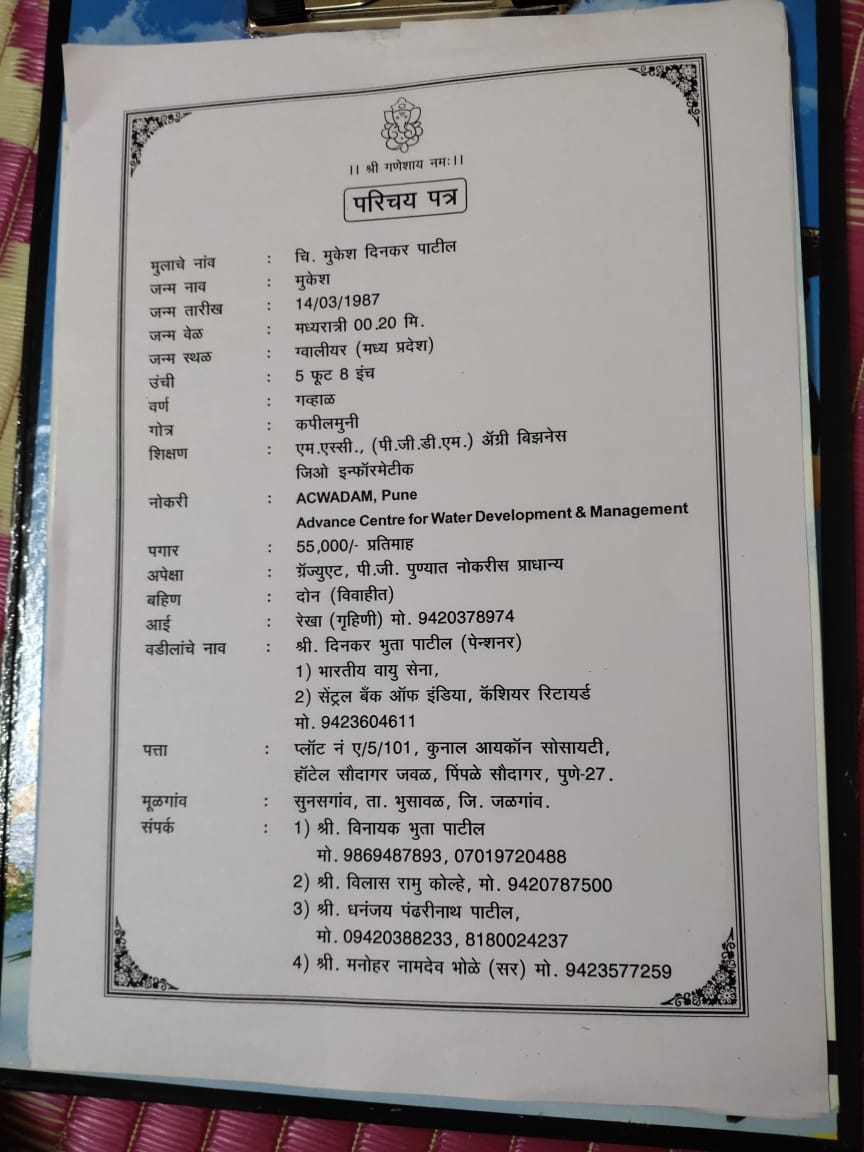 ।। श्री गणेशाय नमः।।
परिचय पत्र
मुलाचे नांव : चि. मुकेश दिनकर पाटील
जन्म नाव : मुकेश
जन्म तारीख : 14/03/1987
जन्म वेळ : मध्यरात्री 00.20 मि.
जन्म स्थळ : ग्वालीयर (मध्य प्रदेश)
उंची : 5 फूट 8 इंच
वर्ण : गव्हाळ
गोत्र : कपीलमुनी
शिक्षण : एम.एस्सी., (पी.जी.डी.एम.) ॲग्री बिझनेस
जिओ इन्फॉरमेटीक
नोकरी : ACWADAM, Pune
Advance Centre for Water Development & Management
पगार : 55,000/- प्रतिमाह
अपेक्षा : ग्रॅज्युएट, पी.जी. पुण्यात नोकरीस प्राधान्य
बहिण : दोन (विवाहीत)
आई : रेखा (गृहिणी) मो. 9420378974
वडीलांचे नाव : श्री. दिनकर भुता पाटील (पेन्शनर)
1) भारतीय वायु सेना,
2) सेंट्रल बँक ऑफ इंडिया, कॅशियर रिटायर्ड
मो. 9423604611
पत्ता : प्लॉट नं ए/5/101, कुनाल आयकॉन सोसायटी,
हॉटेल सौदागर जवळ, पिंपळे सौदागर, पुणे-27.
मूळगांव : सुनसगांव, ता. भुसावळ, जि. जळगांव.
संपर्क : 1) श्री. विनायक भुता पाटील
मो. 9869487893, 07019720488
2) श्री. विलास रामु कोल्हे, मो. 9420787500
3) श्री. धनंजय पंढरीनाथ पाटील,
मो. 09420388233, 8180024237
4) श्री. मनोहर नामदेव भोळे (सर) मो. 9423577259